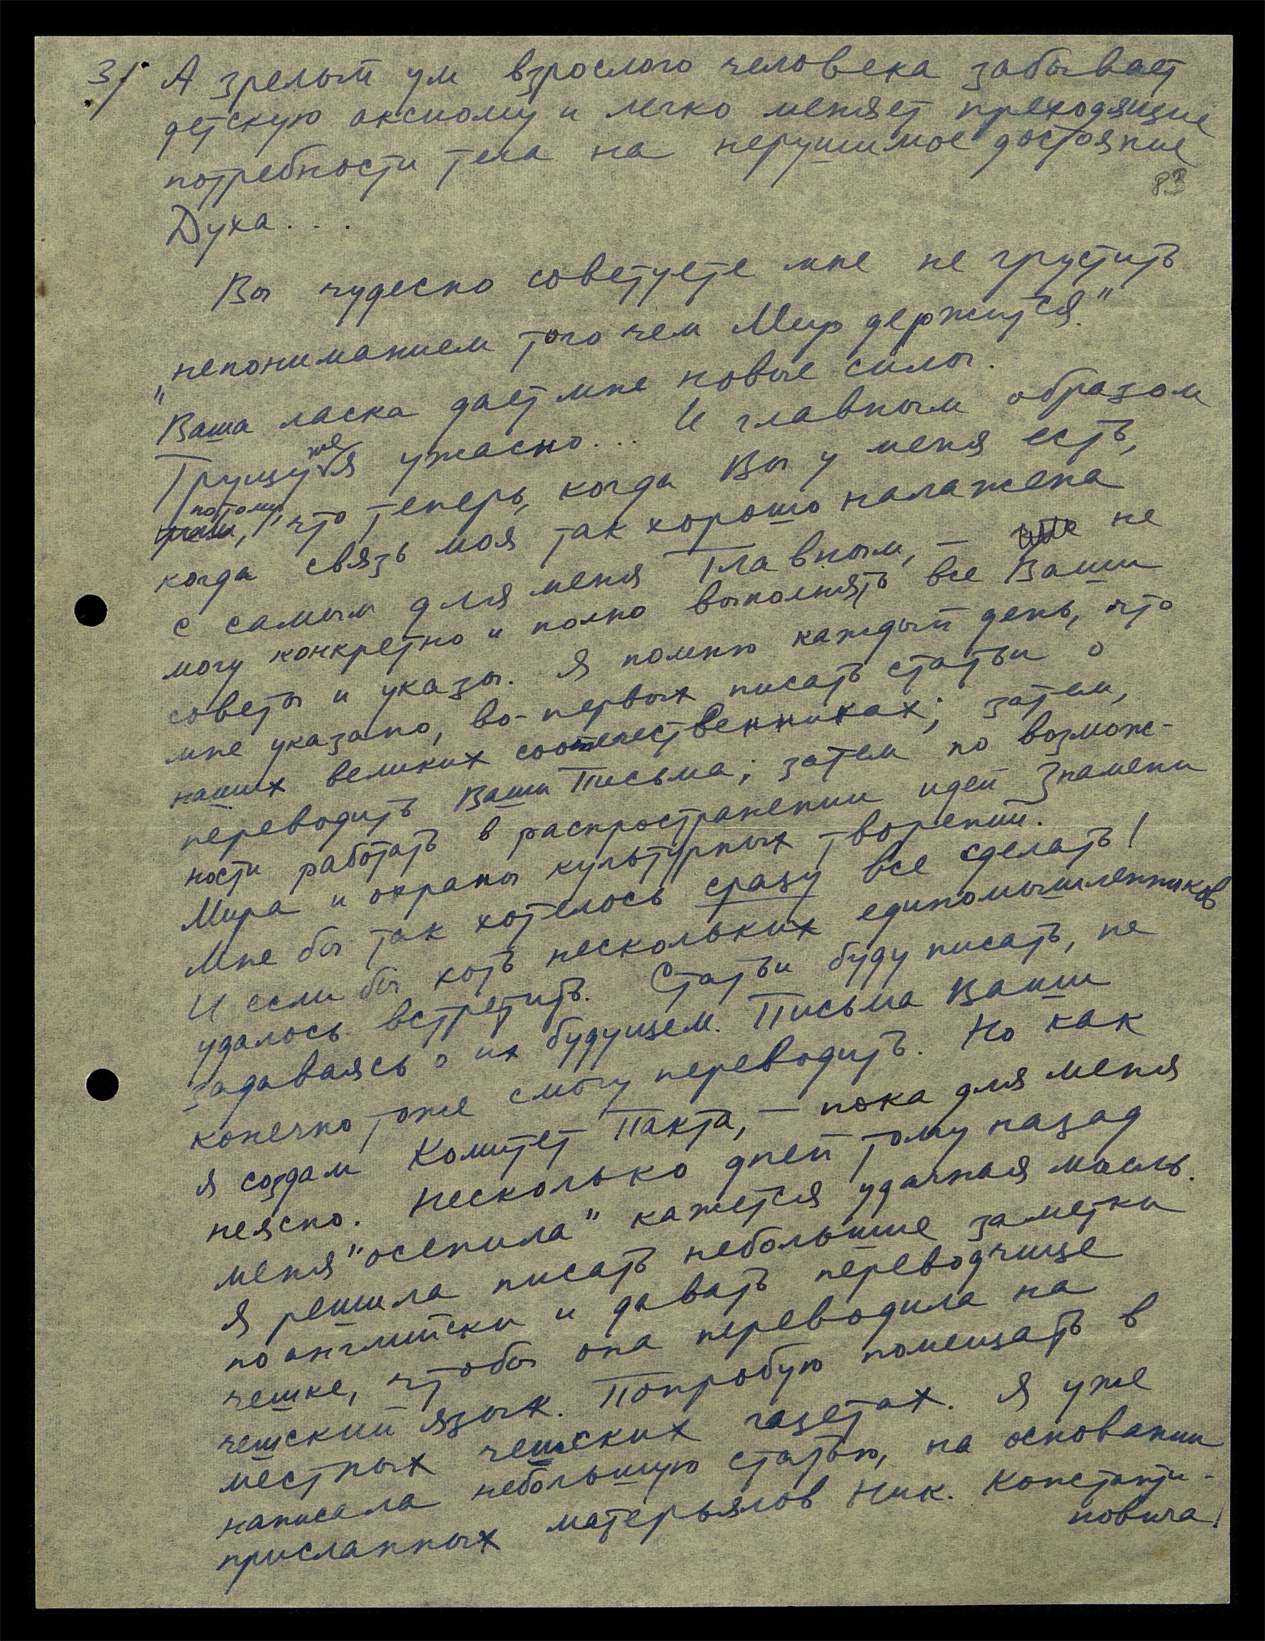 3/ А зрелый ум взрослого человека забывает
детскую аксиому и легко меняет преходящие
потребности тела на нерушимое достояние
83
Духа...
Вы чудесно советуете мне не грустить
„непониманием того чем Мир держится."
Ваша ласка дает мне новые силы.
Грущу же я ужасно... И главным образом
потому, что теперь, когда Вы у меня есть,
когда связь моя так хорошо налажена
с самым для меня Главным, – не
могу конкретно и полно выполнять все Ваши
советы и указы. Я помню каждый день, что
мне указано, во-первых писать статьи о
наших великих соотечественниках; затем,
переводить Ваши Письма; затем по возмож-
ности работать в распространении идеи Знамени
Мира и охраны культурных творений.
Мне бы так хотелось сразу все сделать!
И если бы хоть нескольких единомышленников
удалось встретить. Статьи буду писать, не
задаваясь о их будущем. Письма Ваши
конечно тоже смогу переводить. Но как
я создам Комитет Пакта, – пока для меня
неясно. Несколько дней тому назад
меня "осенила" кажется удачная мысль.
Я решила писать небольшие заметки
по английски и давать переводчице
чешке, чтобы она переводила на
чешский язык. Попробую помещать в
местных чешских газетах. Я уже
написала небольшую статью, на основании
присланных матерьялов Ник. Константи-
новича!